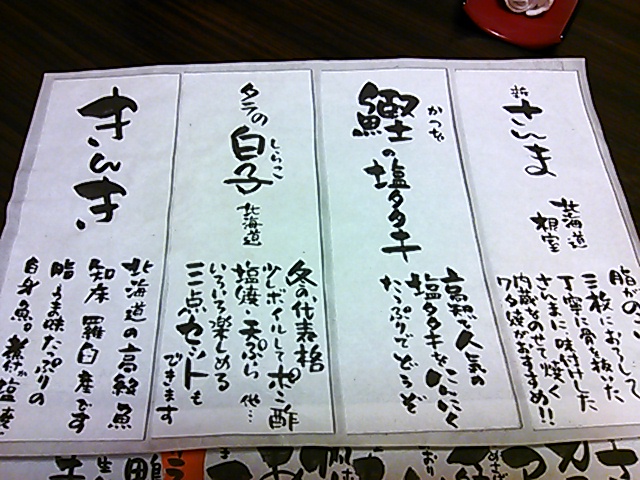 さんま
北海道
根室
脂がのって
三枚におろして
丁寧に骨を抜いた
さんまに味付けした
内蔵をのせて焼く
ワタ焼がおすすめ!!
鰹の塩タタキ
かつお
高知で人気の
塩タタキをにんにく
たっぷりでどうぞ
タラの白子
しらこ
北海道
冬の代表格
少しボイルしてポン酢
塩焼・天ぷら 他…
いろいろ楽しめる
三点セットも
できます
きんき
北海道の高級魚
知床 羅臼産です
脂もうま味たっぷりの
白身魚。煮付 塩焼